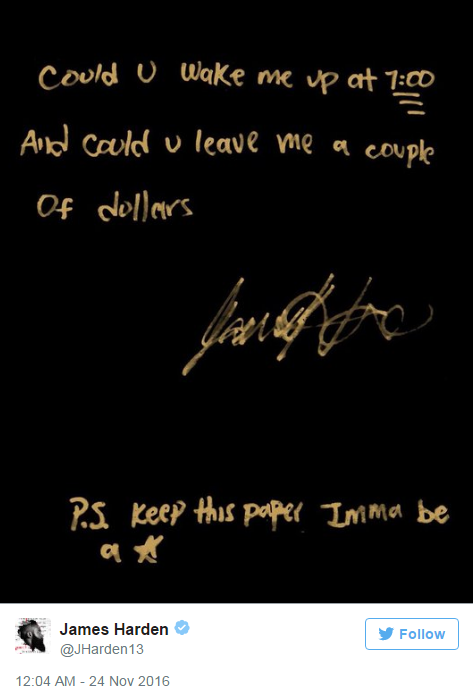 Could U wake me up at 7:00
And could u leave me a couple
Of dollars
P.S. keep this paper Imma be
a
James Harden
@JHarden13
Follow
12:04 AM - 24 Nov 2016